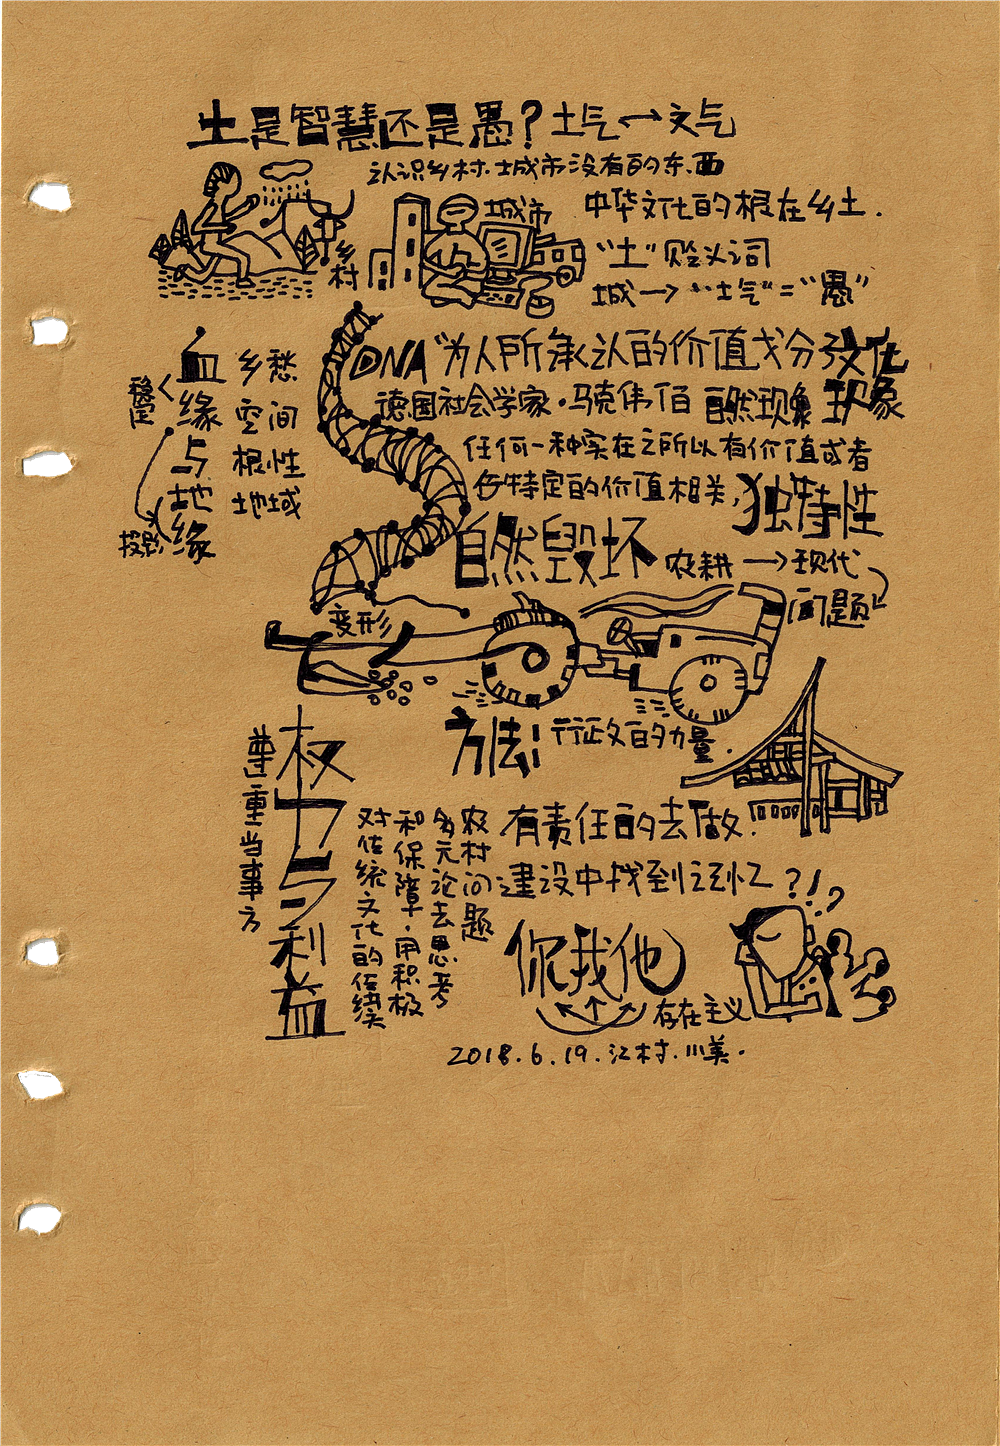 土是智慧还是愚？土气↔文气
认识乡村.城市没有的东.西
乡村
城市
中华文化的根在乡土.
“土”贬义词
城→“土气”=“愚”
血缘与地缘
稳定
投影
乡愁
空间
根性
地域
DNA“为人所承认的价值划分文化现象
德国社会学家·马克伟佰 自然现象
任何一种实在之所以有价值或者
与特定的价值相关,独特性
自然毁坏 农耕→现代
问题
变形
方法! 行政的力量.
尊重当事方
权力与利益
农村问题
多元论去思考
和保障.用积极
对传统文化的传续
有责任的去做.
建设中找到记忆?!?
你我他
存在主义
2018.6.19.江村.川美.